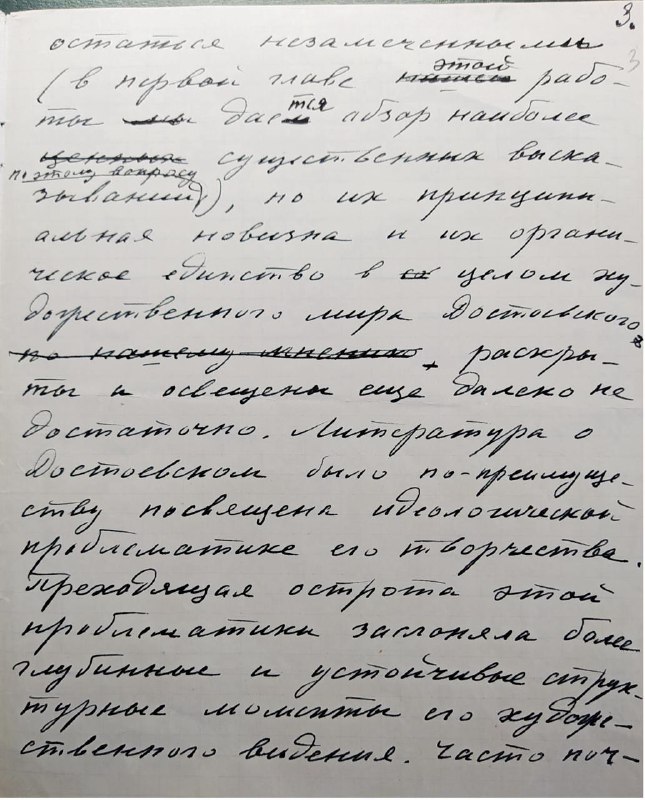 3.
3
остаться незамеченными
(в первой главе нашей этой рабо-
ты мы даем тся обзор наиболее
ценных существенных выска-
по этому вопросу
зываний), но их принципи-
альная новизна и их органи-
ческое единство в целом ху-
дожественного мира Достоевского
по нашему мнению, раскры-
ты и освещены еще далеко не
достаточно. Литература о
Достоевском было по-преимуще-
ству посвящена идеологической
проблематике его творчества.
Преходящая острота этой
проблематики заслоняла более
глубинные и устойчивые струк-
турные моменты его художе-
ственного видения. Часто поч-